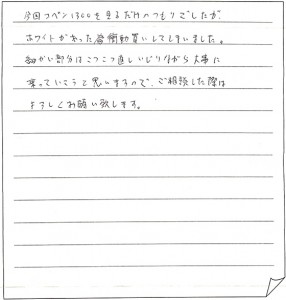 今回コペン1300を見るだけのつもりでしたが、
ホワイトがあった為衝動買いしてしまいました。
細かい部分はこつこつ直しいじりながら大事に
乗っていこうと思いますので、ご相談した際は
よろしくお願い致します。